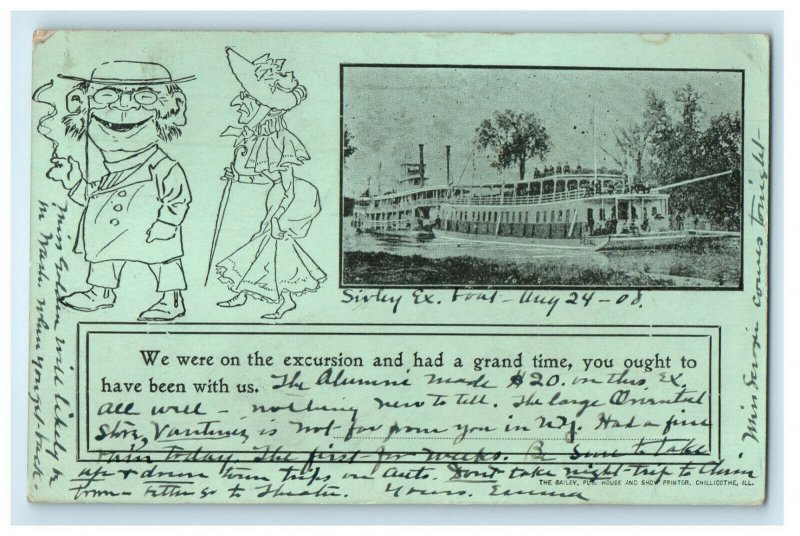 Sibley Ex. boat - Aug 24 - 08.
We were on the excursion and had a grand time, you ought to
have been with us. The Alumni made $20. on this Ex.
all well - nothing new to tell. The large Oriental
Store, Vantines is not far from you in N.Y. Had a fine
rain today. The first for weeks. Be sure to take
up & down town trips on autos. Don't take night-trip to China
town - better go to Theatre. Yours. Emma
THE BAILEY, PUB. HOUSE AND SHOW PRINTER, CHILLICOTHE, ILL.
Miss will likely be
in Wash. when you get back -
Miss comes tonight -